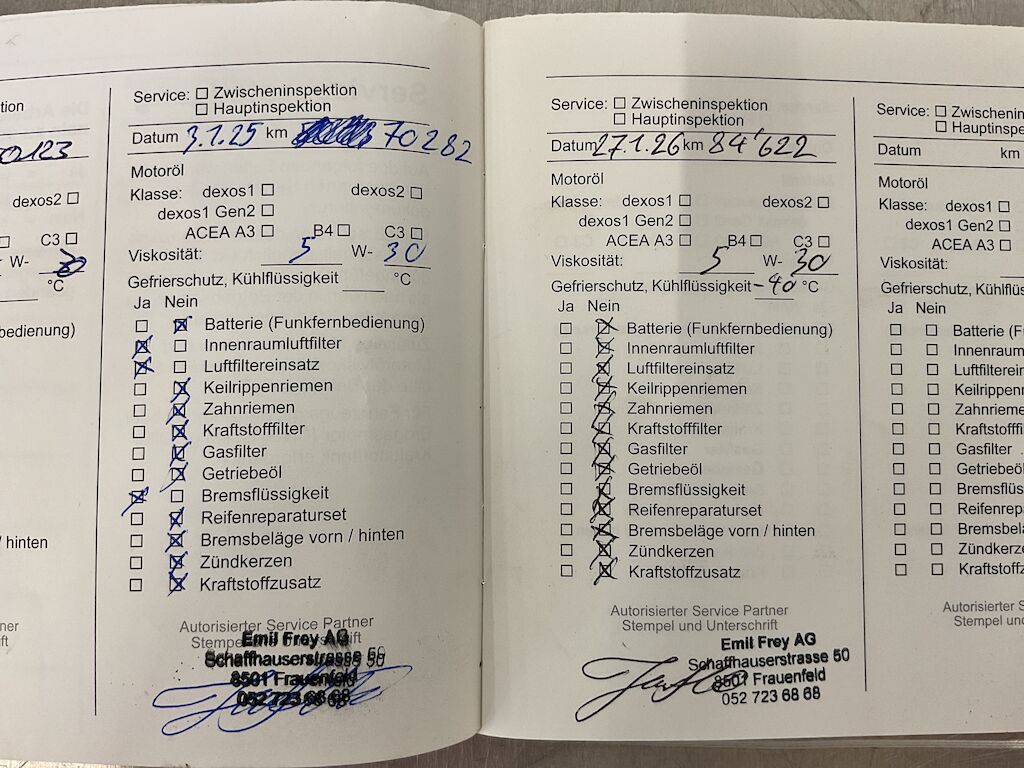 tion
0123
dexos2
C3
W- 30
°C
nbedienung)
/ hinten
Service: Zwischeninspektion
Hauptinspektion
Datum 3.1.25 km 70282
Motoröl
Klasse: dexos1 dexos2
dexos1 Gen2
ACEA A3 B4 C3
Viskosität: 5 W- 30
Gefrierschutz, Kühlflüssigkeit °C
Ja Nein
Batterie (Funkfernbedienung)
Innenraumluftfilter
Luftfiltereinsatz
Keilrippenriemen
Zahnriemen
Kraftstofffilter
Gasfilter
Getriebeöl
Bremsflüssigkeit
Reifenreparaturset
Bremsbeläge vorn / hinten
Zündkerzen
Kraftstoffzusatz
Autorisierter Service Partner
Stempel und Unterschrift
Emil Frey AG
Schaffhauserstrasse 50
8501 Frauenfeld
052 723 68 68
Service: Zwischeninspektion
Hauptinspektion
Datum 27.1.26 km 84'622
Motoröl
Klasse: dexos1 dexos2
dexos1 Gen2
ACEA A3 B4 C3
Viskosität: 5 W- 30
Gefrierschutz, Kühlflüssigkeit -40 °C
Ja Nein
Batterie (Funkfernbedienung)
Innenraumluftfilter
Luftfiltereinsatz
Keilrippenriemen
Zahnriemen
Kraftstofffilter
Gasfilter
Getriebeöl
Bremsflüssigkeit
Reifenreparaturset
Bremsbeläge vorn / hinten
Zündkerzen
Kraftstoffzusatz
Autorisierter Service Partner
Stempel und Unterschrift
Emil Frey AG
Schaffhauserstrasse 50
8501 Frauenfeld
052 723 68 68
Service: Zwischenin
Hauptinspe
Datum km
Motoröl
Klasse: dexos1
dexos1 Gen2
ACEA A3
Viskosität:
Gefrierschutz, Kühlflüs
Ja Nein
Batterie (F
Innenraum
Luftfilterein
Keilrippenr
Zahnrieme
Kraftstofffi
Gasfilter
Getriebeöl
Bremsflüs
Reifenrepa
Bremsbelä
Zündkerze
Kraftstoffz
Autorisierter S
Stempel un